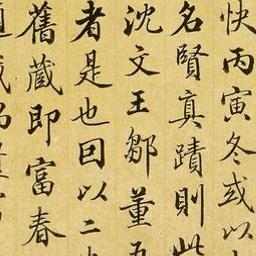 快丙寅冬或以
名賢真蹟則此
沈文王鄒董五
者是也因以二
舊藏即富春